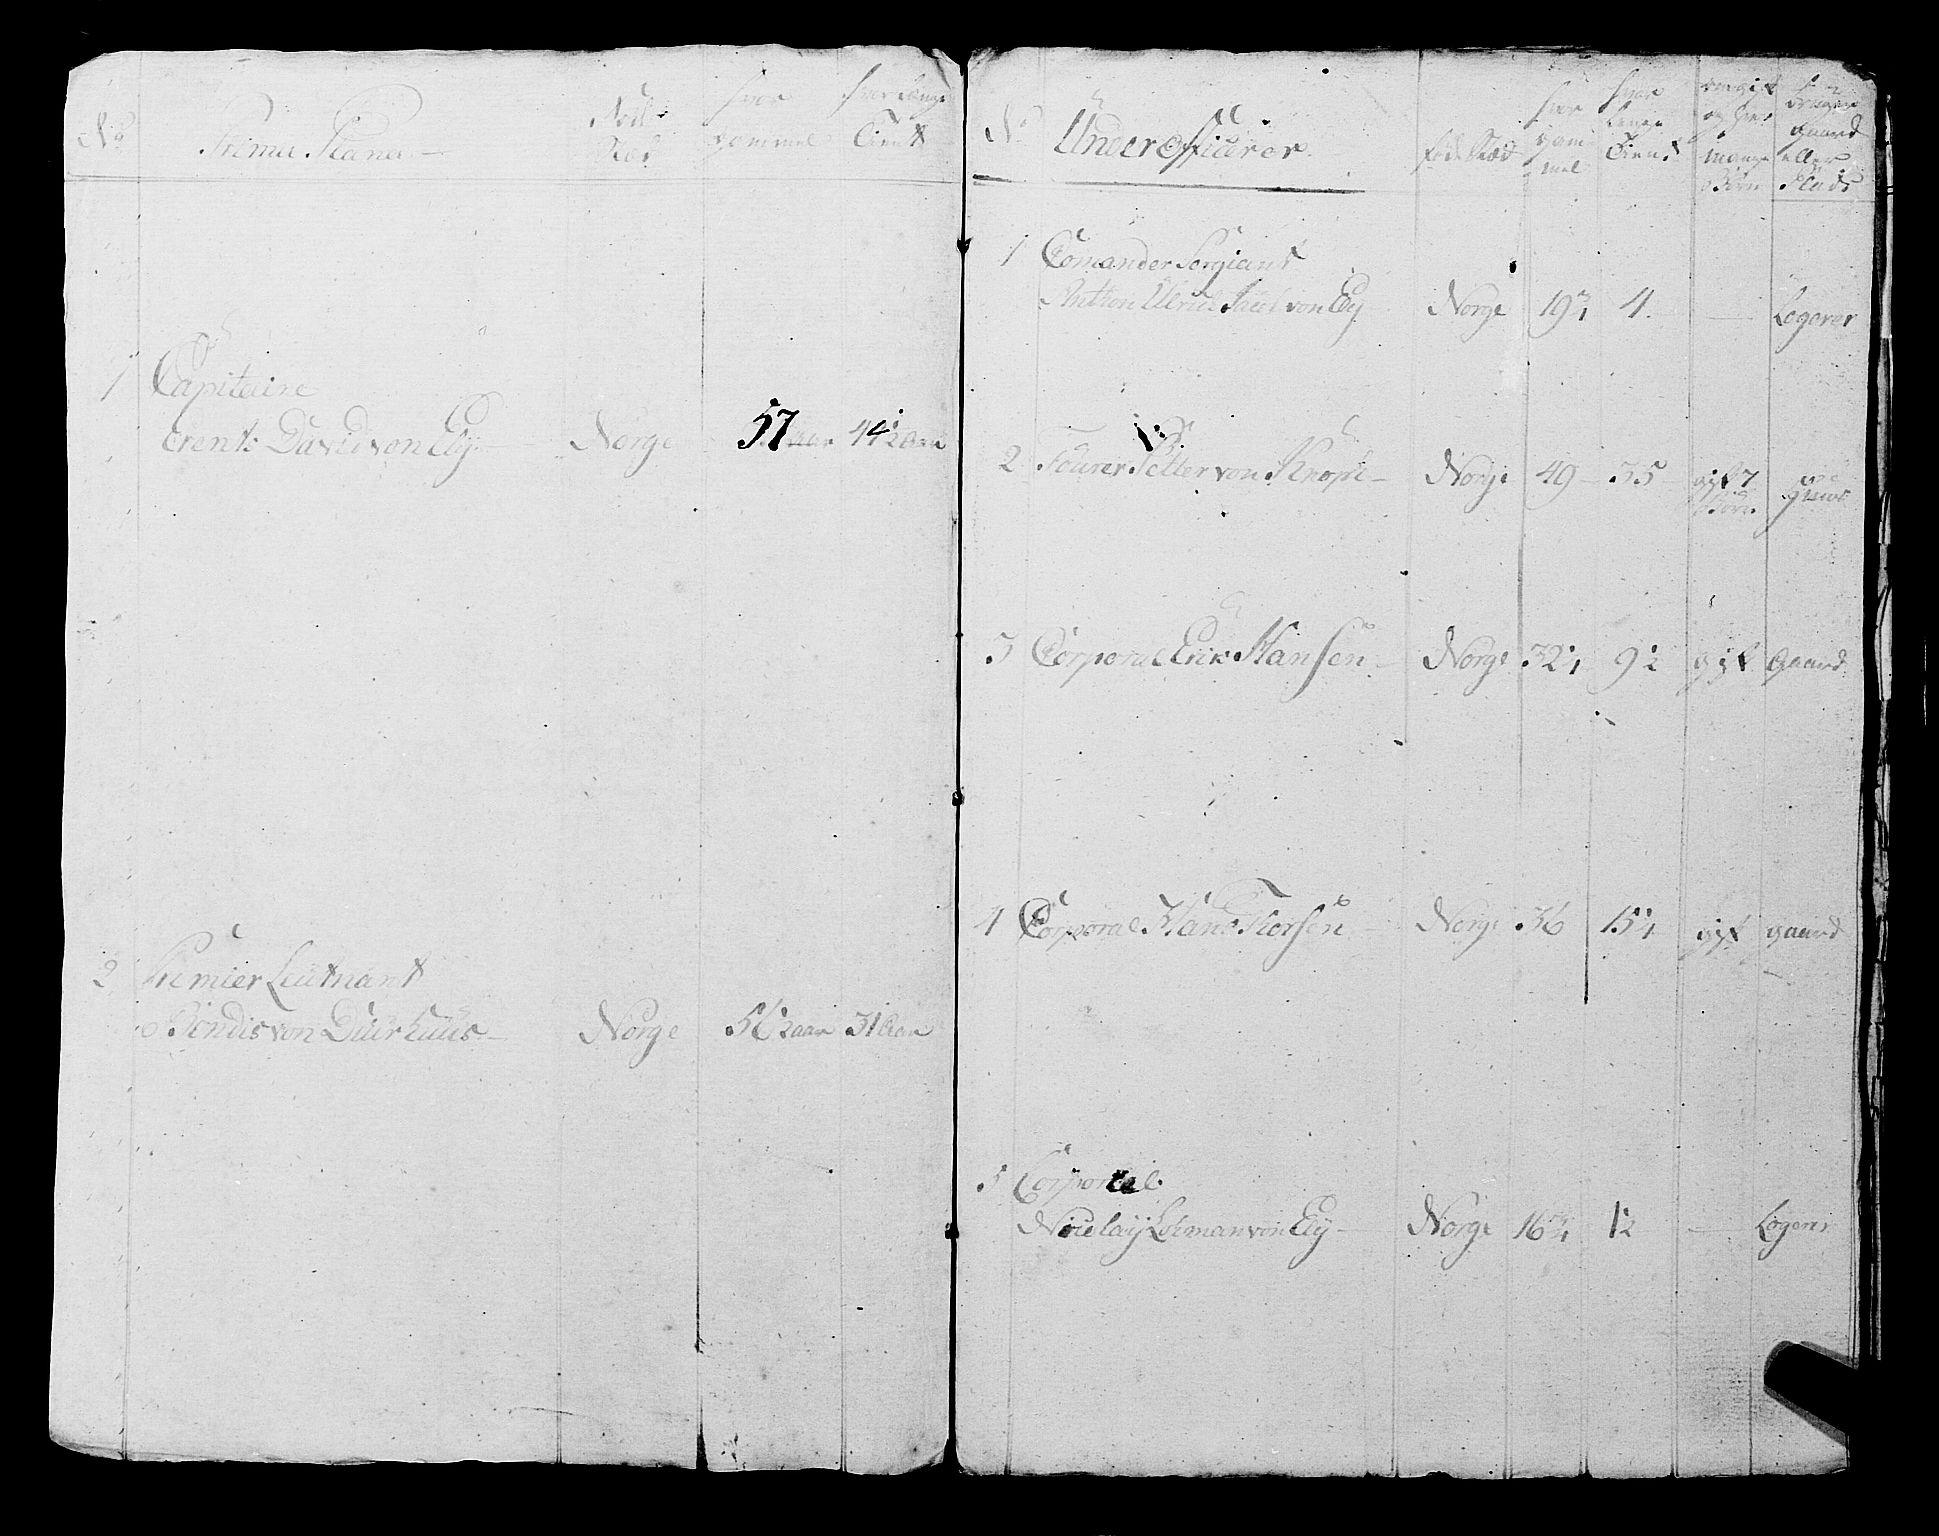 No Prima Plana
Föde Stæd
hvor gammel
hvor Længe Tient
1 Capitaine
Arent David von Ely Norge 57 aar 44 1/2 Aar
2 Premier Leutnant
Bendix von Duurhuus Norge 56 1/2 aar 31 Aar
No Under Officerer
föde Stæd
hvor gam mel
hvor Lenge Tient
om gift og hvor mange Börn
bruger gaard eller Plads
1 Comander Sergiant
Anthon Ulrich von Ely Norge 19 3/4 4 Logerer
2 Fourer Petter von Norge 49 35 gift 7 Börn
3 Corporal Erik Hansen Norge 32 1/4 9 1/2 gift Gaard
4 Corporal Hans Norge 36 15 1/4 gift gaard
5 Corporal
Nicolaÿ von Ely Norge 16 3/4 1/2 Logerer